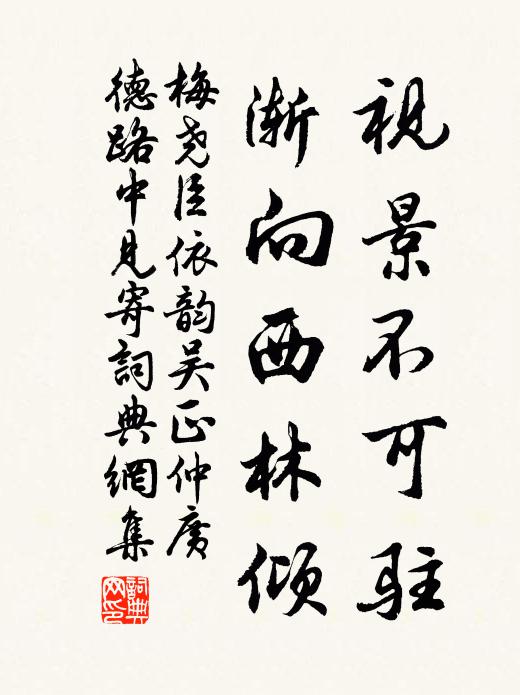 视景不可驻
渐向西林倾
梅尧臣依韵吴正仲广
德路中见寄詞典網集
詞典网印